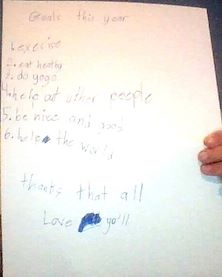 Goals this year
1. exercise
2. eat healthy
3. do yoga
4. help out other people
5. be nice and good
6. help the world
thanks that all
Love yo'll